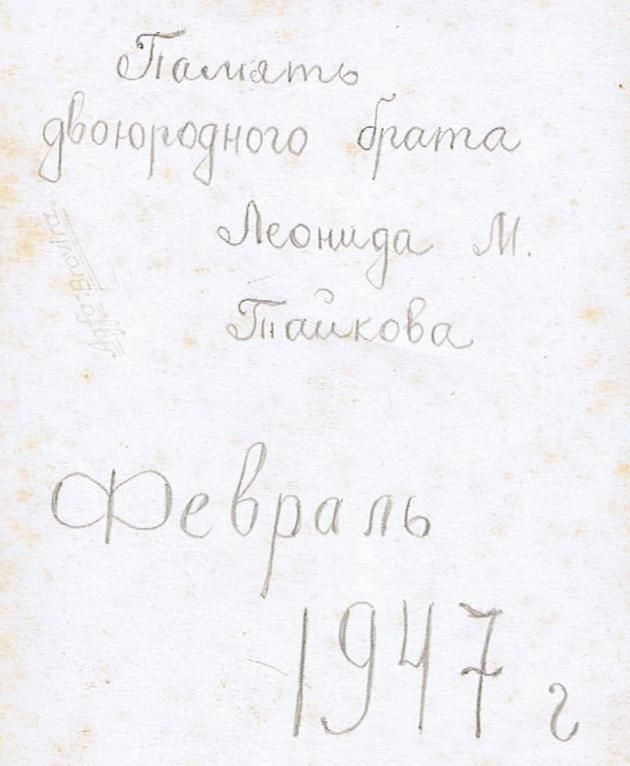 Память
двоюродного брата
Леонида М.
Тайкова
Февраль
1947 г